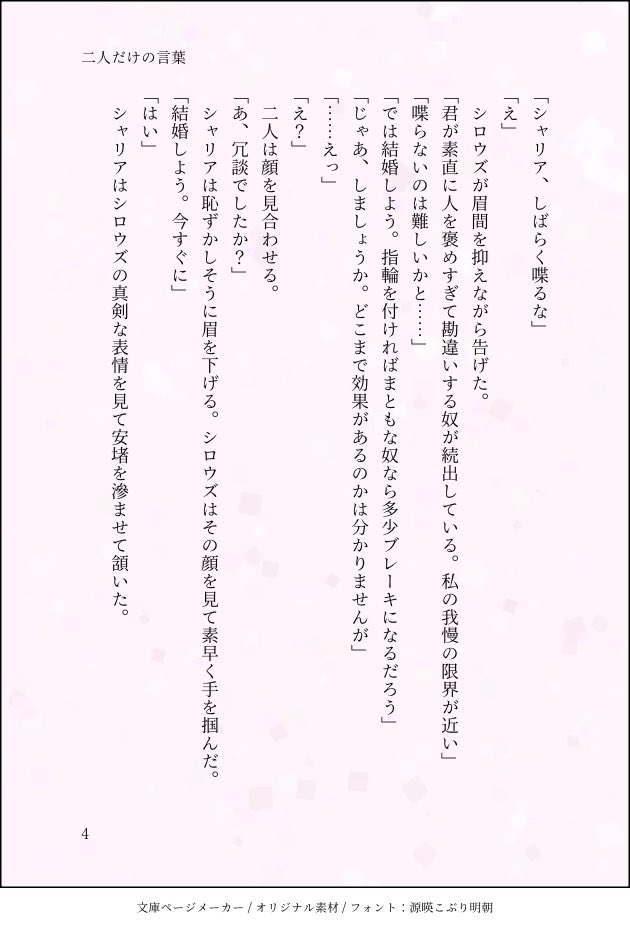 二人だけの言葉
「シャリア、しばらく喋るな」
「え」
シロウズが眉間を抑えながら告げた。
「君が素直に人を褒めすぎて勘違いする奴が続出している。私の我慢の限界が近い」
「喋らないのは難しいかと……」
「では結婚しよう。指輪を付ければまともな奴なら多少ブレーキになるだろう」
「じゃあ、しましょうか。どこまで効果があるのかは分かりませんが」
「……えっ」
「え？」
二人は顔を見合わせる。
「あ、冗談でしたか？」
シャリアは恥ずかしそうに眉を下げる。シロウズはその顔を見て素早く手を掴んだ。
「結婚しよう。今すぐに」
「はい」
シャリアはシロウズの真剣な表情を見て安堵を滲ませて頷いた。
4
文庫ページメーカー / オリジナル素材 / フォント：源暎こぶり明朝